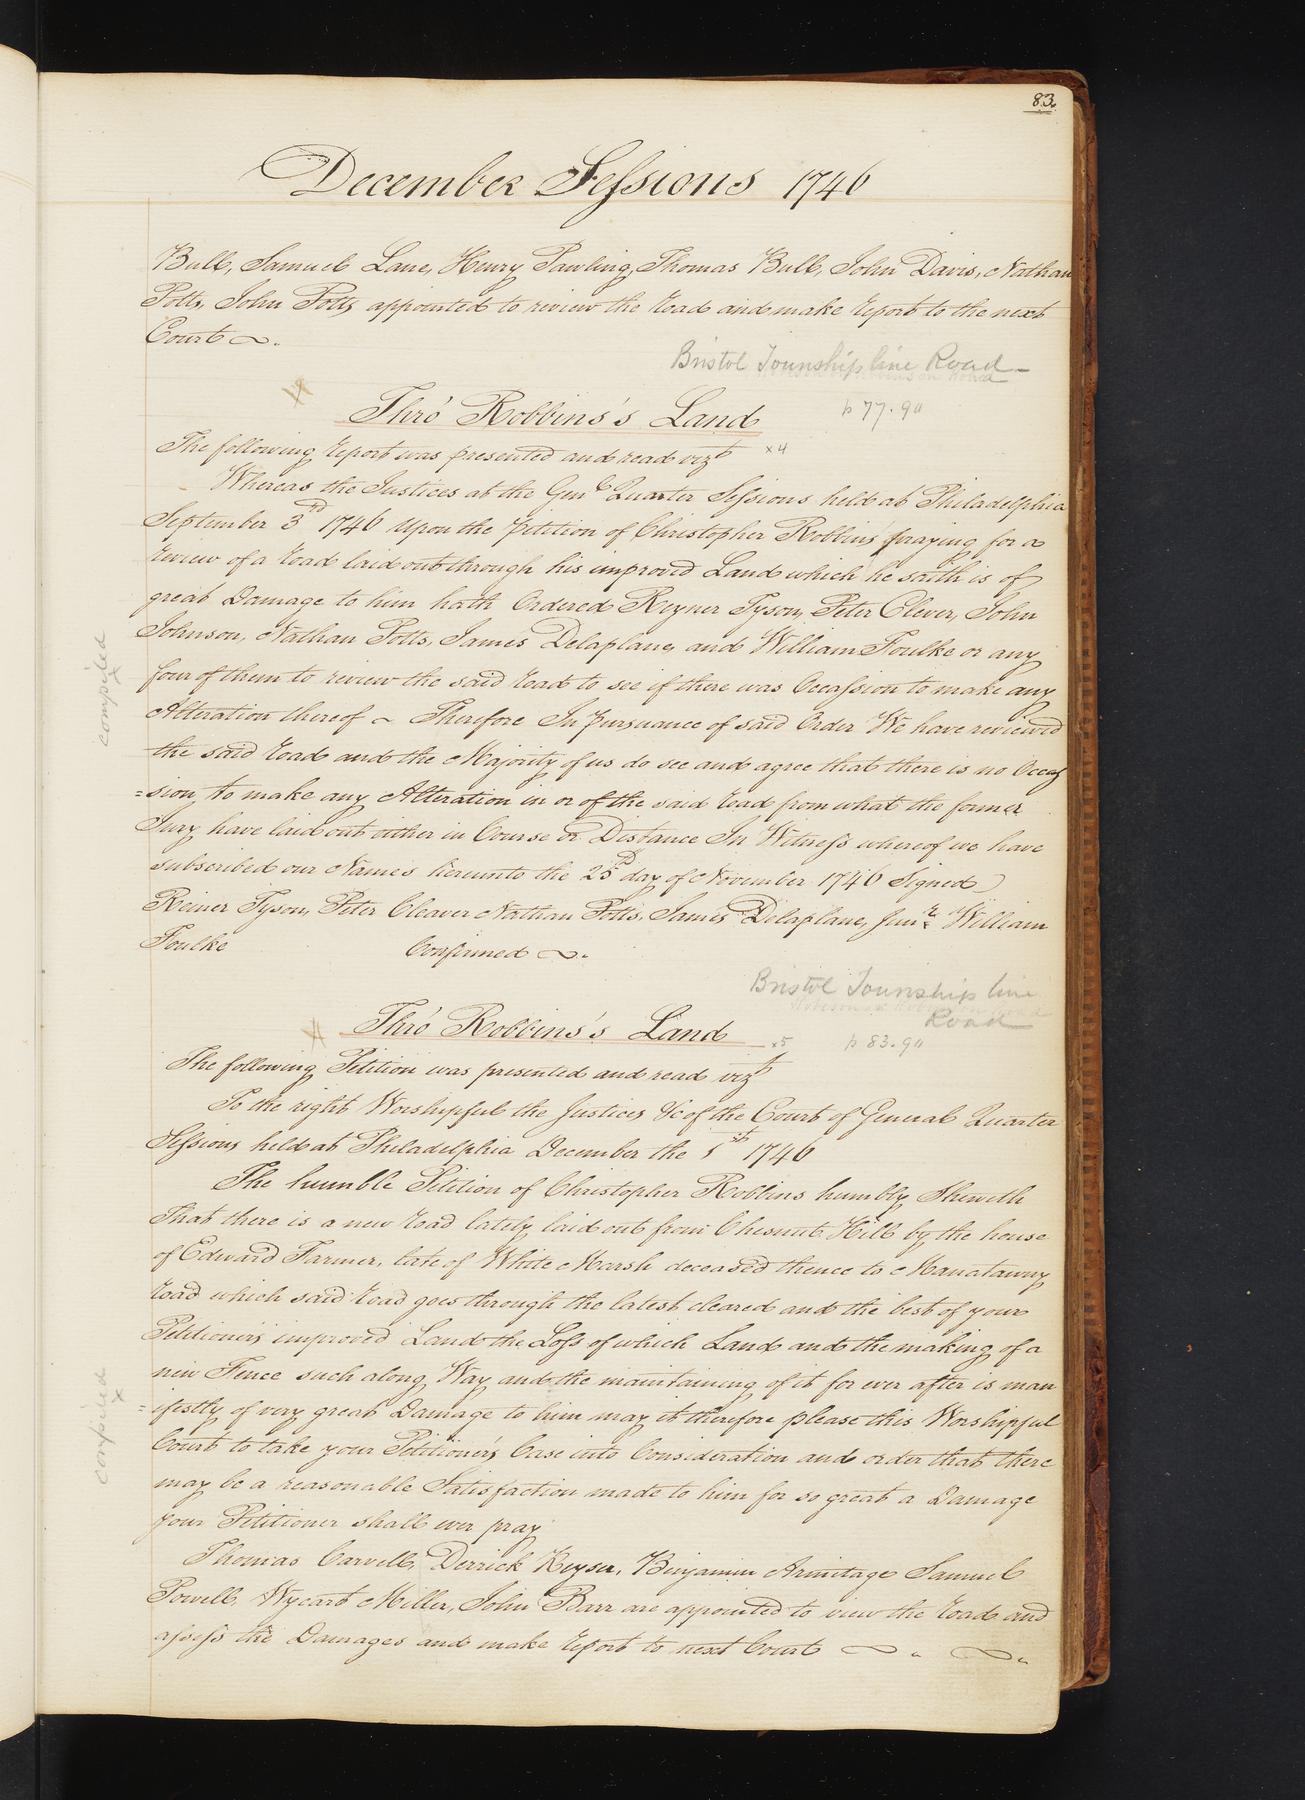 83.
December Sessions 1746
Bull, Samuel Lane, Henry Pawling, Thomas Bull, John Davis, Nathan
Potts, John Potts appointed to review the road and make report to the next
Court
Bristol Township line Road
p 77.90
Thro' Robbins's Land
x4
The following report was presented and read vizt
Whereas the Justices at the Genl Quarter Sessions held at Philadelphia
September 3rd 1746 upon the petition of Christopher Robbins praying for a
review of a road laid out through his improved Land which he saith is of
great Damage to him hath Ordered Reyner Tyson, Peter Clever, John
Johnson, Nathan Potts, James Delaplane and William Foulke or any
four of them to review the said road to see if there was Occassion to make any
Alteration thereof ~ Therefore In pursuance of said Order We have reviewed
the said road and the Majority of us do see and agree that there is no Occas
=sion to make any Alteration in or of the said road from what the former
Jury have laid out either in Course or Distance In Witness whereof we have
subscribed our Names hereunto the 25th day of November 1746 Signed
Reiner Tyson, Peter Cleaver Nathan Potts, James Delaplane, Junr William
Foulke Confirmed
Bristol Township line
Road
p 83.90
Thro' Robbins's Land
x5
The following Petition was presented and read vizt
To the right Worshipful the Justices &c of the Court of General Quarter
Sessions held at Philadelphia December the 1st 1746
The humble Petition of Christopher Robbins humbly Sheweth
That there is a new road lately laid out from Chesnut Hill by the house
of Edward Farmer, late of White Marsh deceased thence to Manatawny
road which said road goes through the latest cleared and the best of your
Petitioner's improved Land the Loss of which Land and the making of a
new Fence such along Way and the maintaining of it for ever after is man
=ifestly of very great Damage to him may it therefore please this Worshipful
Court to take your Petitioner's Case into Consideration and order that there
may be a reasonable Satisfaction made to him for so great a Damage
your Petitioner shall ever pray
Thomas Carvell, Derrick Keyser, Binjamin Armitage Samuel
Powell Wycart Miller, John Barr are appointed to view the road and
assess the Damages and make report to next Court
compiled
x
compiled
x